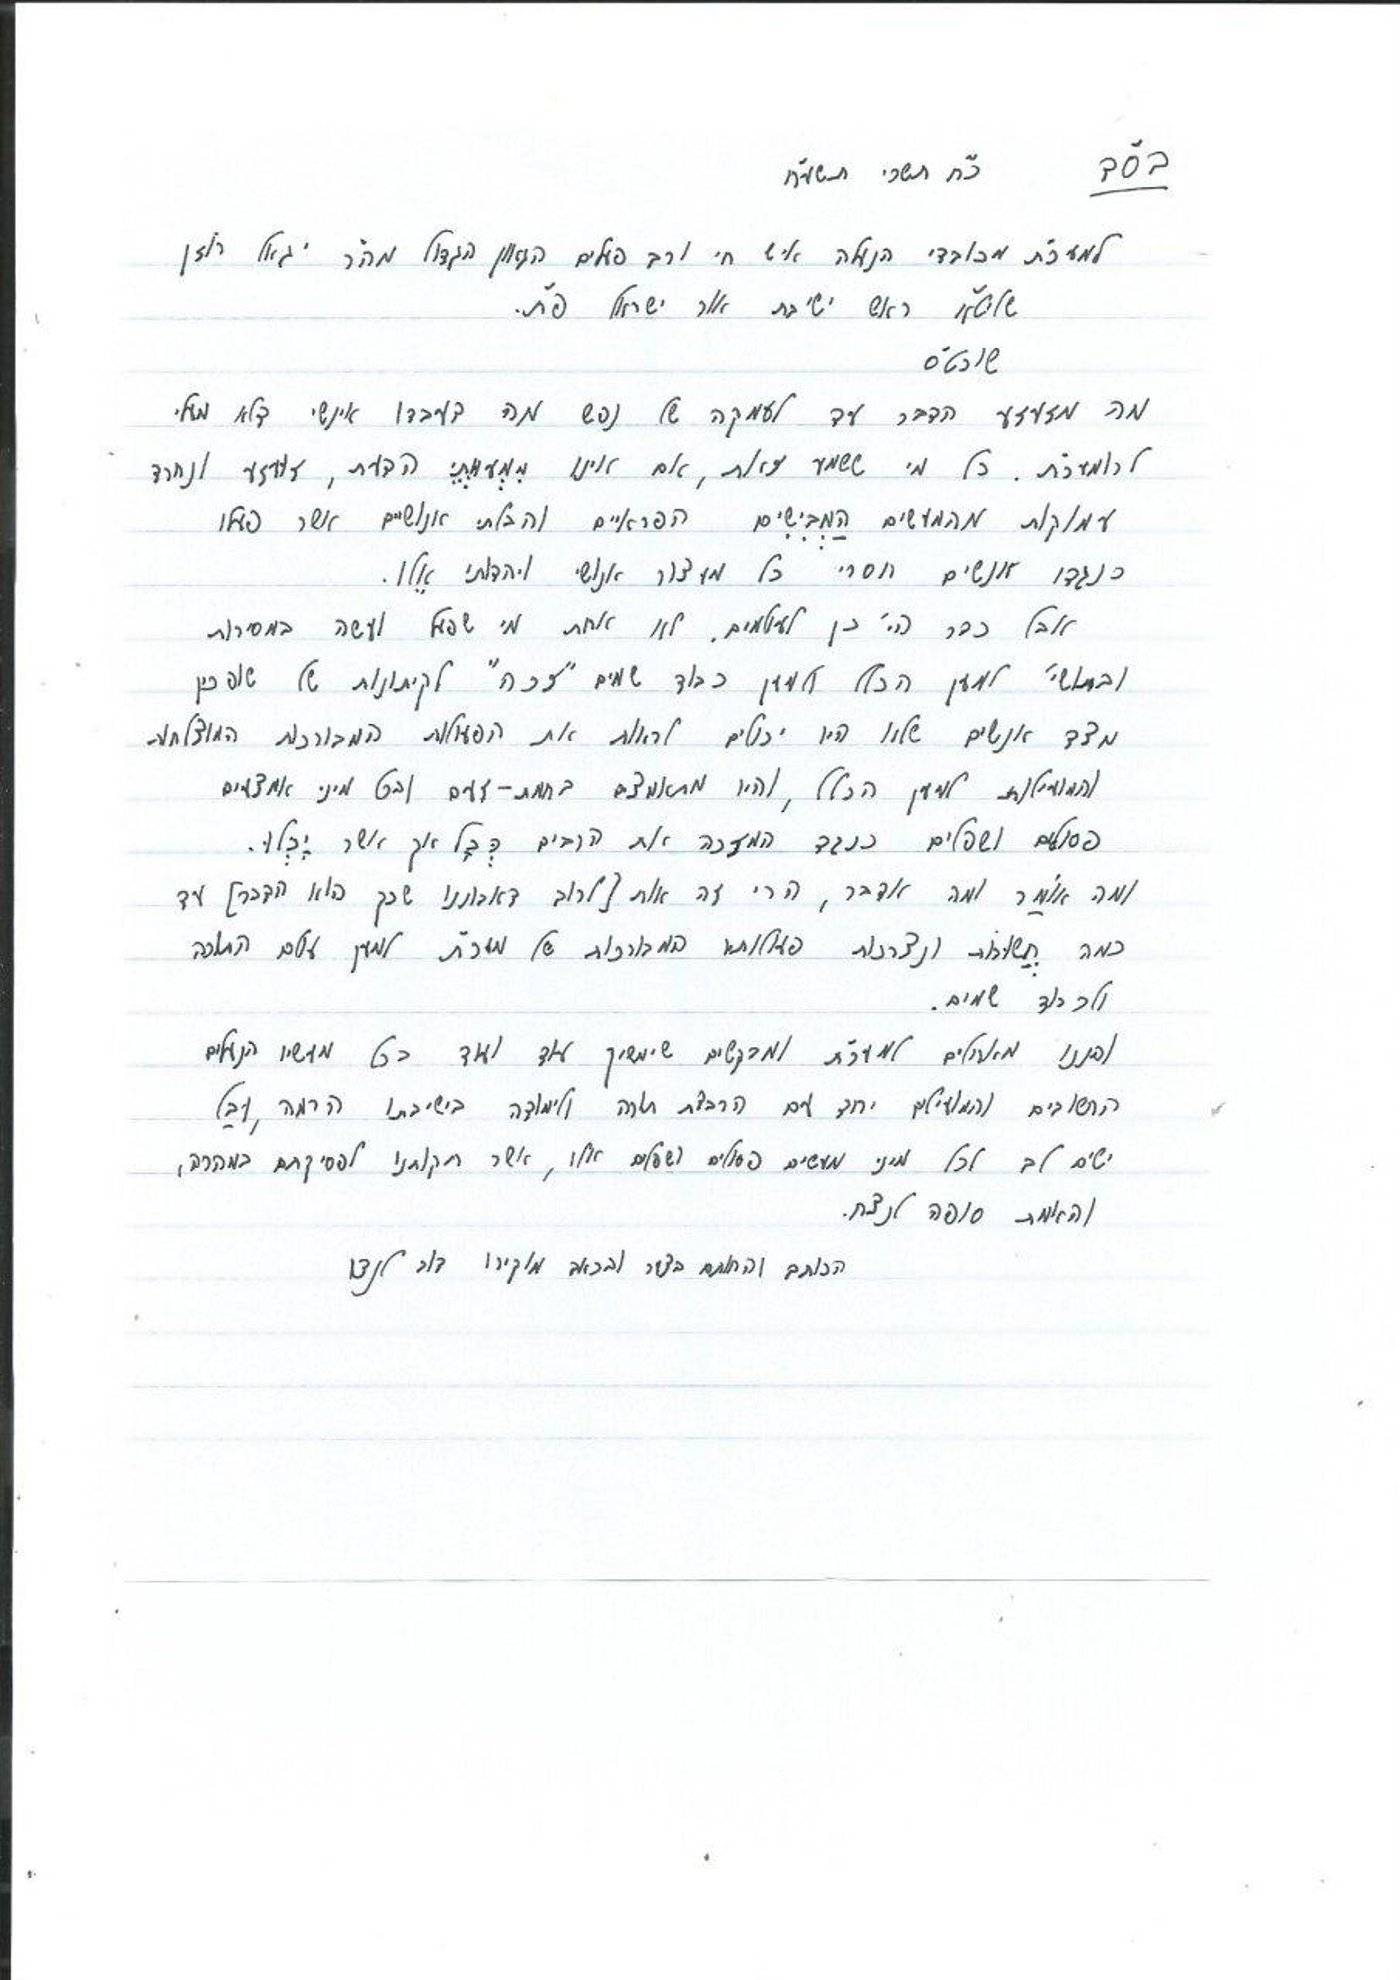 בס"ד כ"ח תשרי תשע"ח
למעכ"ת מכובדי הנעלה איש חי ורב פעלים הגאון הגדול מהר"ר יגאל רוזן
שליט"א ראש ישיבת אור ישראל פ"ת.
שוכט"ס
מה מזעזע הדבר עד לעמקה של נפש מה דעבדו אינשי דלא מעלי
לרומעכ"ת. כל מי ששמע זאת, אם אינו הדעת, זועזע ונחרד
עמוקות מהמעשים הַמְבִישִׁים הפראיים והבלתי אנושיים אשר פעלו
כנגדו אנשים חסרי כל מעצור אנושי ויהדותי אֵלו.
אבל כבר הי' כן לעולמים. לא אחת מי שפעל ועשה במסירות
למען הכלל ולמען כבוד שמים "זכה" לקיתונות של שופכין
מצד אנשים שלא היו יכולים לראות את הפעולות המבורכות המוצלחות
והמועילות למען הכלל, והיו מתאמצים בחמת-זעם ובכל מיני אמצעים
פסולים ושפלים כנגד המזכה את הרבים בְּכָל אך אשר יָכְלוּ.
ומה אוֹמַר ומה אדבר, הרי זה אות [לרוב דאבוננו שכך הוא הדבר] עד
כמה חֲשׁוּבוֹת ונצרכות פעולותיו המבורכות של מעכ"ת למען עולם התורה
ולכבוד שמים.
והננו מאחלים למעכ"ת ומבקשים שימשיך עוד ועוד בכל מעשיו הנעלים
החשובים והמועילים יחד עם הרבצת תורה ולימודה בישיבתו הרמה, וְבַל
ישים לב לכל מיני מעשים פסולים ושפלים אלו, אשר תקותנו לפסיקתם במהרה,
והאמת סופה לנצח.
הכותב והחותם בצער ובכאב מוקירו דוב לנדו